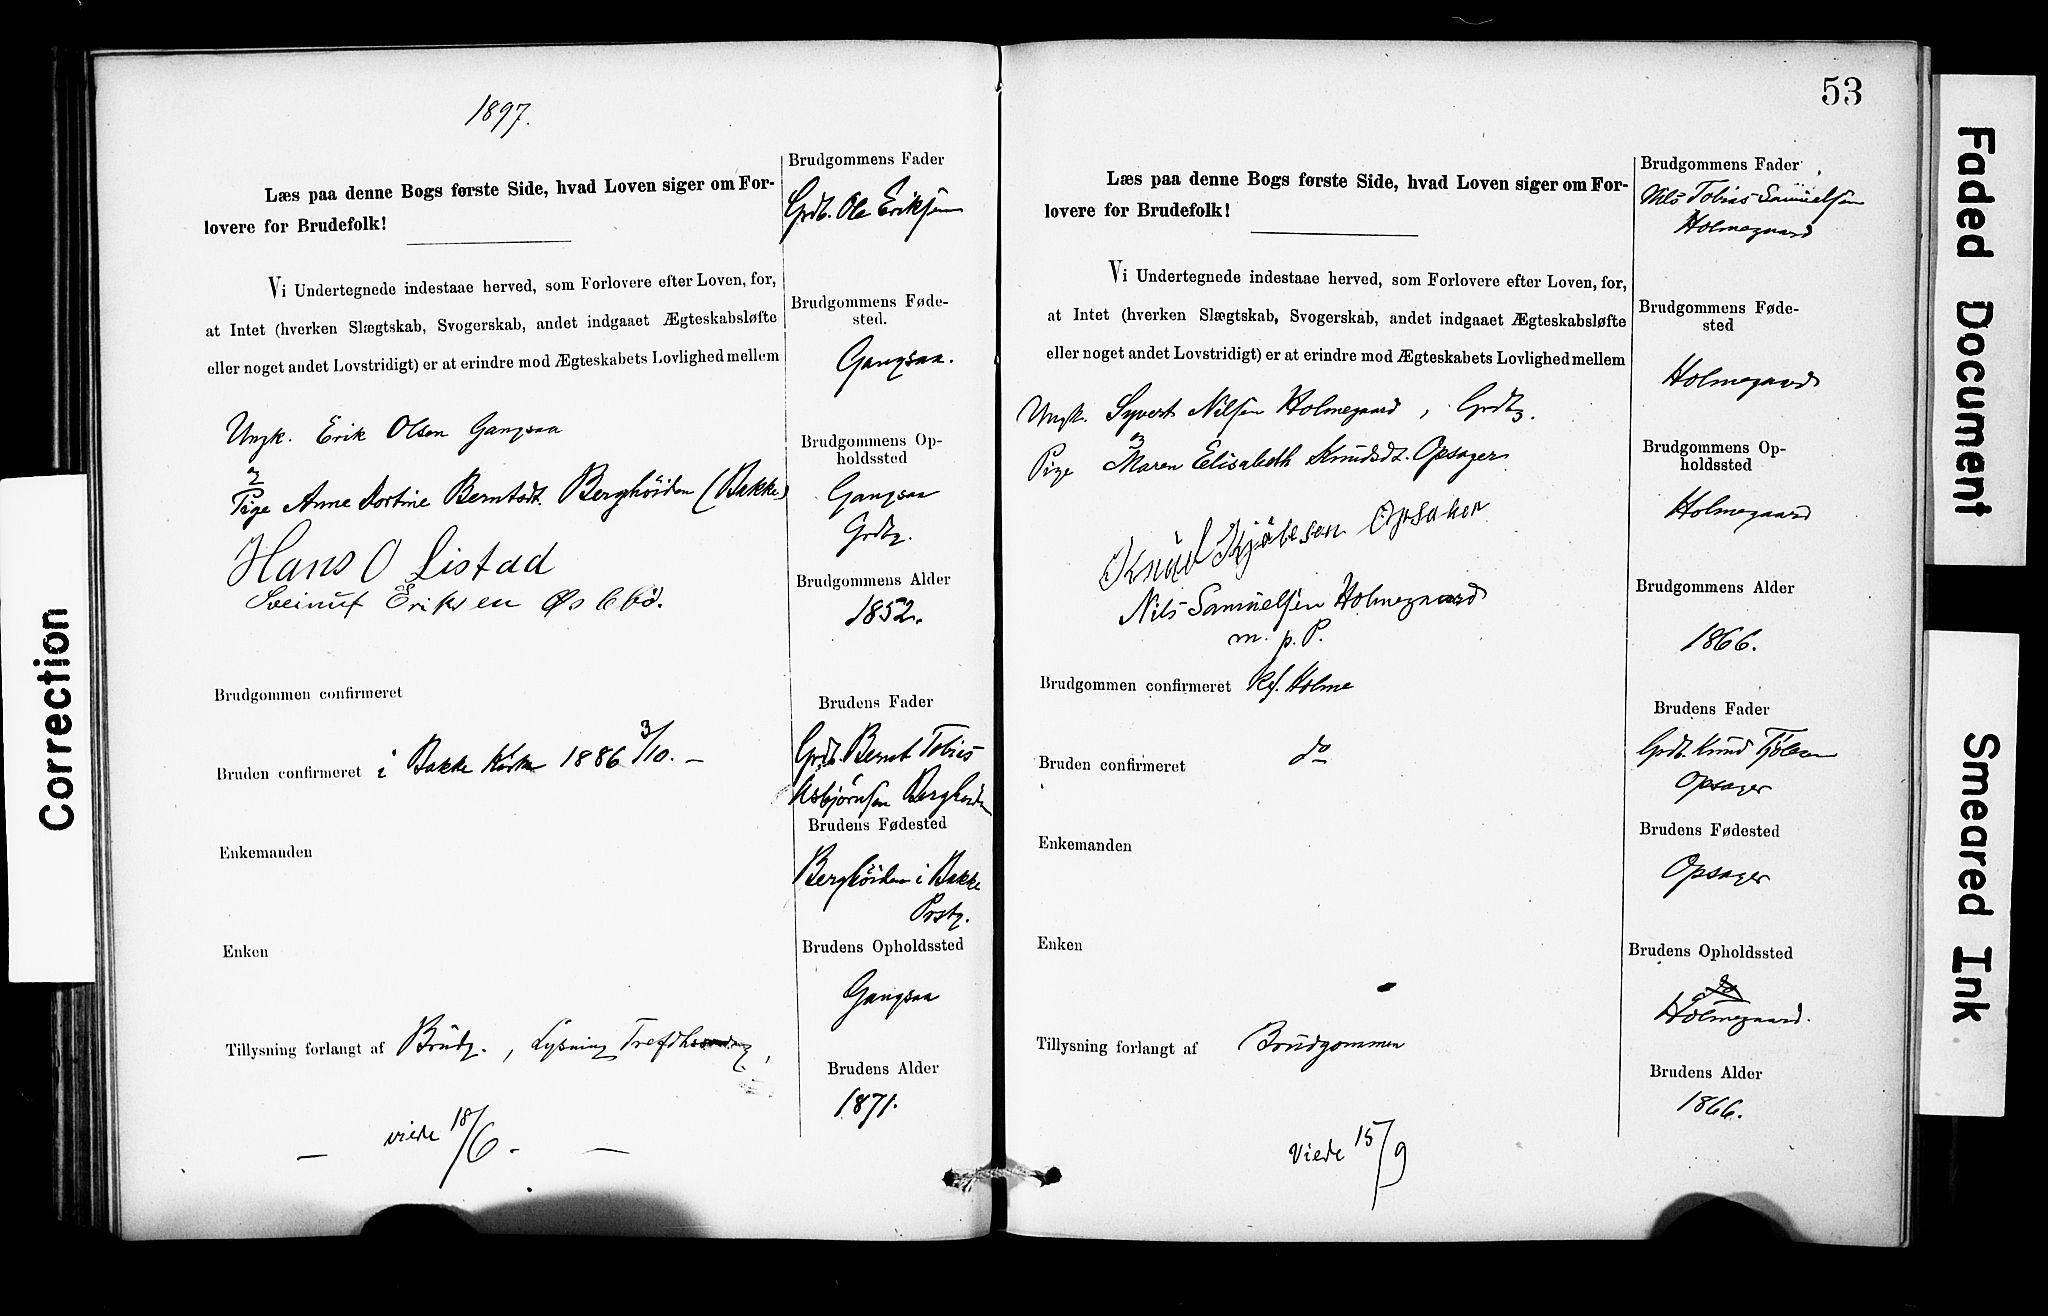 1897.
Læs paa denne Bogs første Side, hvad Loven siger om For-
lovere for Brudefolk!
Vi Undertegnede indestaae herved, som Forlovere efter Loven, for,
at Intet (hverken Slægtskab, Svogerskab, andet indgaaet Ægteskabsløfte
eller noget andet Lovstridigt) er at erindre mod Ægteskabets Lovlighed mellem
Ungk. Erik Olsen Gangsaa
og
Pige Anne Dortine Berntsdt. Berghöiden (Bakke)
Hans O Listad
Sveinuf Eriksen Øslebö.
Brudgommen confirmeret
Bruden confirmeret i Bakke Kirke 1886 3/10. —
Enkemanden
Enken
Tillysning forlangt af Brudg. , Lysning
viede 18/6. —
Brudgommens Fader
Grdb. Ole Eriksen
Brudgommens Føde-
sted.
Gangsaa.
Brudgommens Op-
holdssted
Gangsaa
Grdbg.
Brudgommens Alder
1852.
Brudens Fader
Grdb. Bernt Tobias
Asbjörnsen Berghöiden
Brudens Fødested
Berghöiden i Bakke
Prstg.
Brudens Opholdssted
Gangsaa
Brudens Alder
1871.
53
Læs paa denne Bogs første Side, hvad Loven siger om For-
lovere for Brudefolk!
Vi Undertegnede indestaae herved, som Forlovere efter Loven, for,
at Intet (hverken Slægtskab, Svogerskab, andet indgaaet Ægteskabsløfte
eller noget andet Lovstridigt) er at erindre mod Ægteskabets Lovlighed mellem
Ungk. Syvert Nilsen Holmegaard, Grdbg.
og
Pige Maren Elisabeth Knudsdt. Opsager
Knud Kjölesen Opsaker
Nils Samuelsen Holmegaard
m. p. P.
Brudgommen confirmeret Kf. Holme
Bruden confirmeret do
Enkemanden
Enken
Tillysning forlangt af Brudgommen
Viede 15/9
Brudgommens Fader
Nils Tobias Samuelsen
Holmegaard
Brudgommens Føde-
sted
Holmegaard
Brudgommens Op-
holdssted
Holmegaard
Brudgommens Alder
1866.
Brudens Fader
Grdb. Knud Tjölesen
Opsager
Brudens Fødested
Opsager
Brudens Opholdssted
do
Holmegaard.
Brudens Alder
1866.
Correction
Faded Document
Smeared Ink